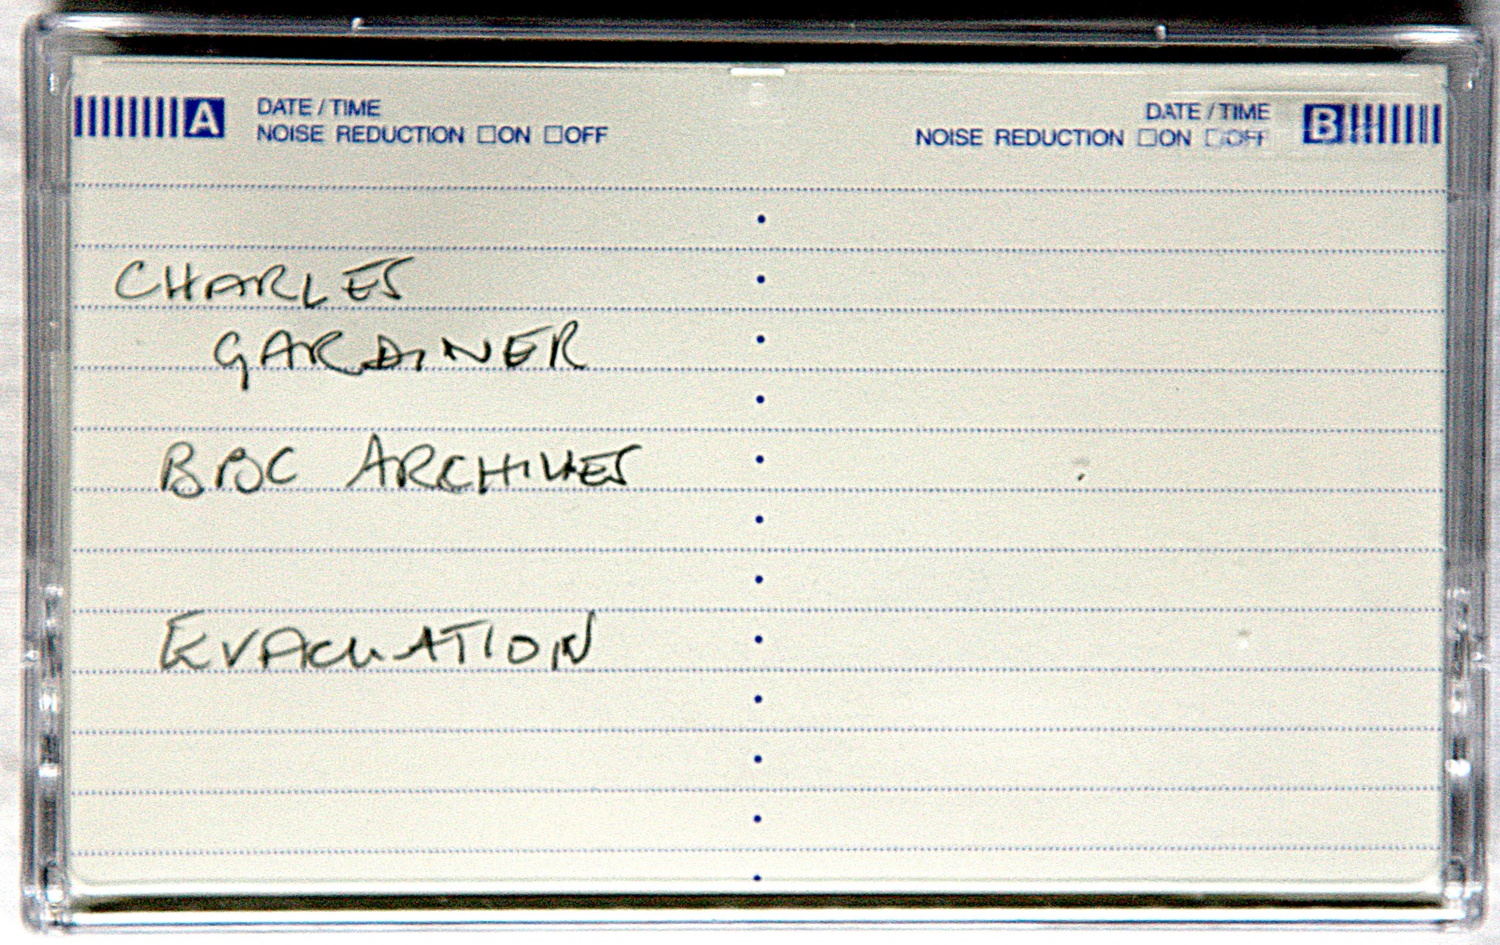 A DATE / TIME
NOISE REDUCTION □ON □OFF
DATE / TIME B
NOISE REDUCTION □ON □OFF
CHARLES
GARDINER
BBC ARCHIVES
EVACUATION